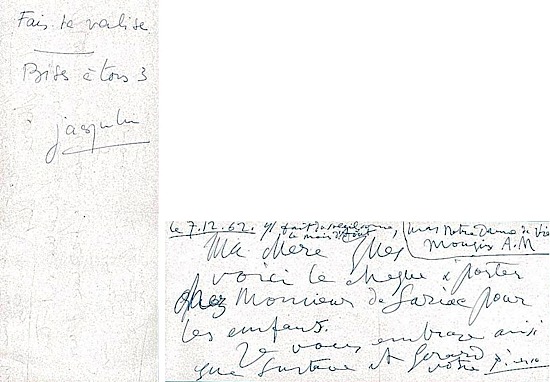 Fais ta valise
Bises à tous 3
Jacqueline
le 7.12.62. Mas Notre Dame de Vie
Mougins A.M
Ma chère
voici le chèque à porter
chez Monsieur de Sariac pour
les enfants.
Je vous embrasse ainsi
que Gustave et Gérard
votre